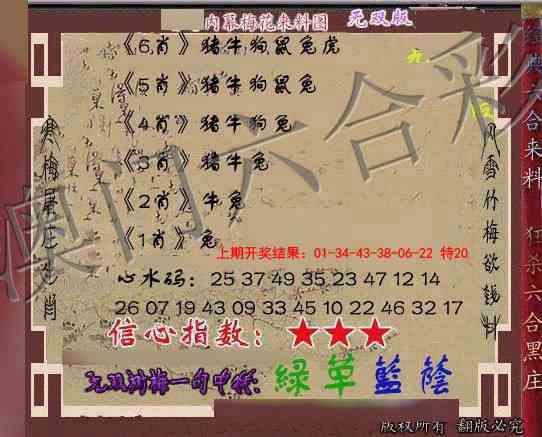 内幕梅花来料图 无双版
《6肖》猪牛狗鼠兔虎
《5肖》猪牛狗鼠兔
《4肖》猪牛狗兔
《3肖》猪牛兔
《2肖》牛兔
《1肖》兔
上期开奖结果：01-34-43-38-06-22 特20
心水码：25 37 49 35 23 47 12 14
26 07 19 43 09 33 45 10 22 46 32 17
信心指数：★★★
绿草蓝荫
风雪竹梅欲钱料
经典六合来料 狂杀六合黑庄
澳门六合彩
版权所有 翻版必究